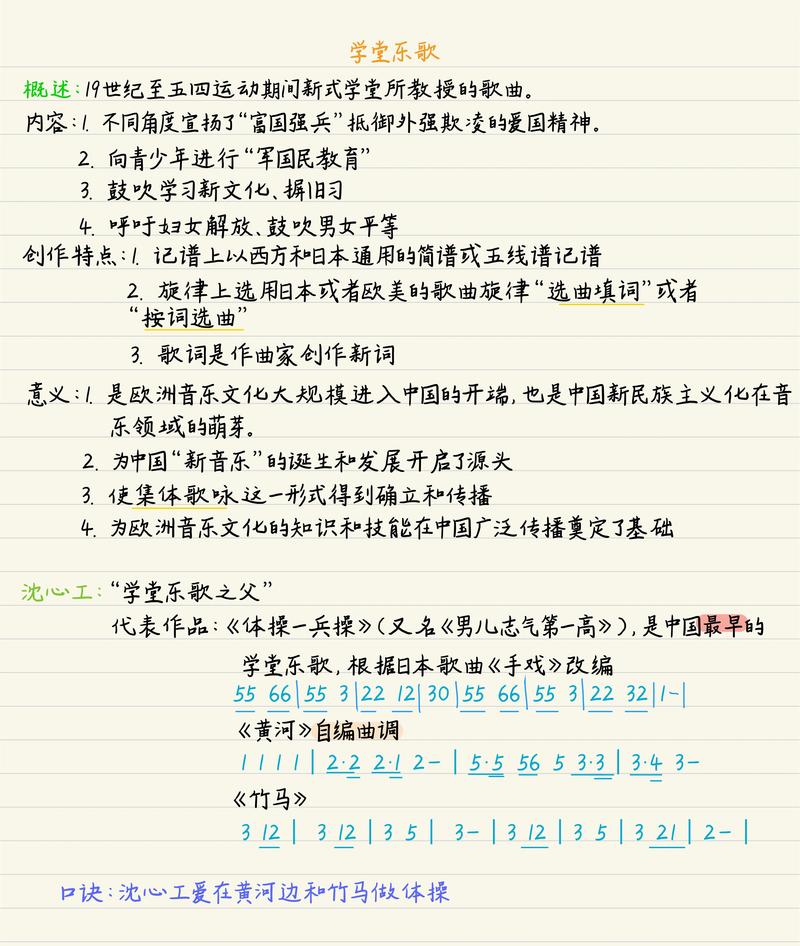 学堂乐歌
概述:19世纪至五四运动期间新式学堂所教授的歌曲。
内容:1. 不同角度宣扬了“富国强兵”抵御外强欺凌的爱国精神。
2. 向青少年进行“军国民教育”
3. 鼓吹学习新文化、摒旧习
4. 呼吁妇女解放、鼓吹男女平等
创作特点:1. 记谱上以西方和日本通用的简谱或五线谱记谱
2. 旋律上选用日本或者欧美的歌曲旋律“选曲填词”或者
“按词选曲”
3. 歌词是作曲家创作新词
意义:1. 是欧洲音乐文化大规模进入中国的开端,也是中国新民族主义化在音
乐领域的萌芽。
2. 为中国“新音乐”的诞生和发展开启了源头
3. 使集体歌咏这一形式得到确立和传播
4. 为欧洲音乐文化的知识和技能在中国广泛传播奠定了基础
沈心工:“学堂乐歌之父”
代表作品:《体操—兵操》(又名《男儿志气第一高》),是中国最早的
学堂乐歌,根据日本歌曲《手戏》改编
55 66|55 3|22 12|30|55 66|55 3|22 32|1-|
《黄河》自编曲调
1 1 1 1 | 2·2 2·1 2- | 5·5 56 5 3·3 | 3·4 3-
《竹马》
3 12 | 3 12 | 3 5 | 3- | 3 12 | 3 5 | 3 21 | 2- |
口诀:沈心工爱在黄河边和竹马做体操